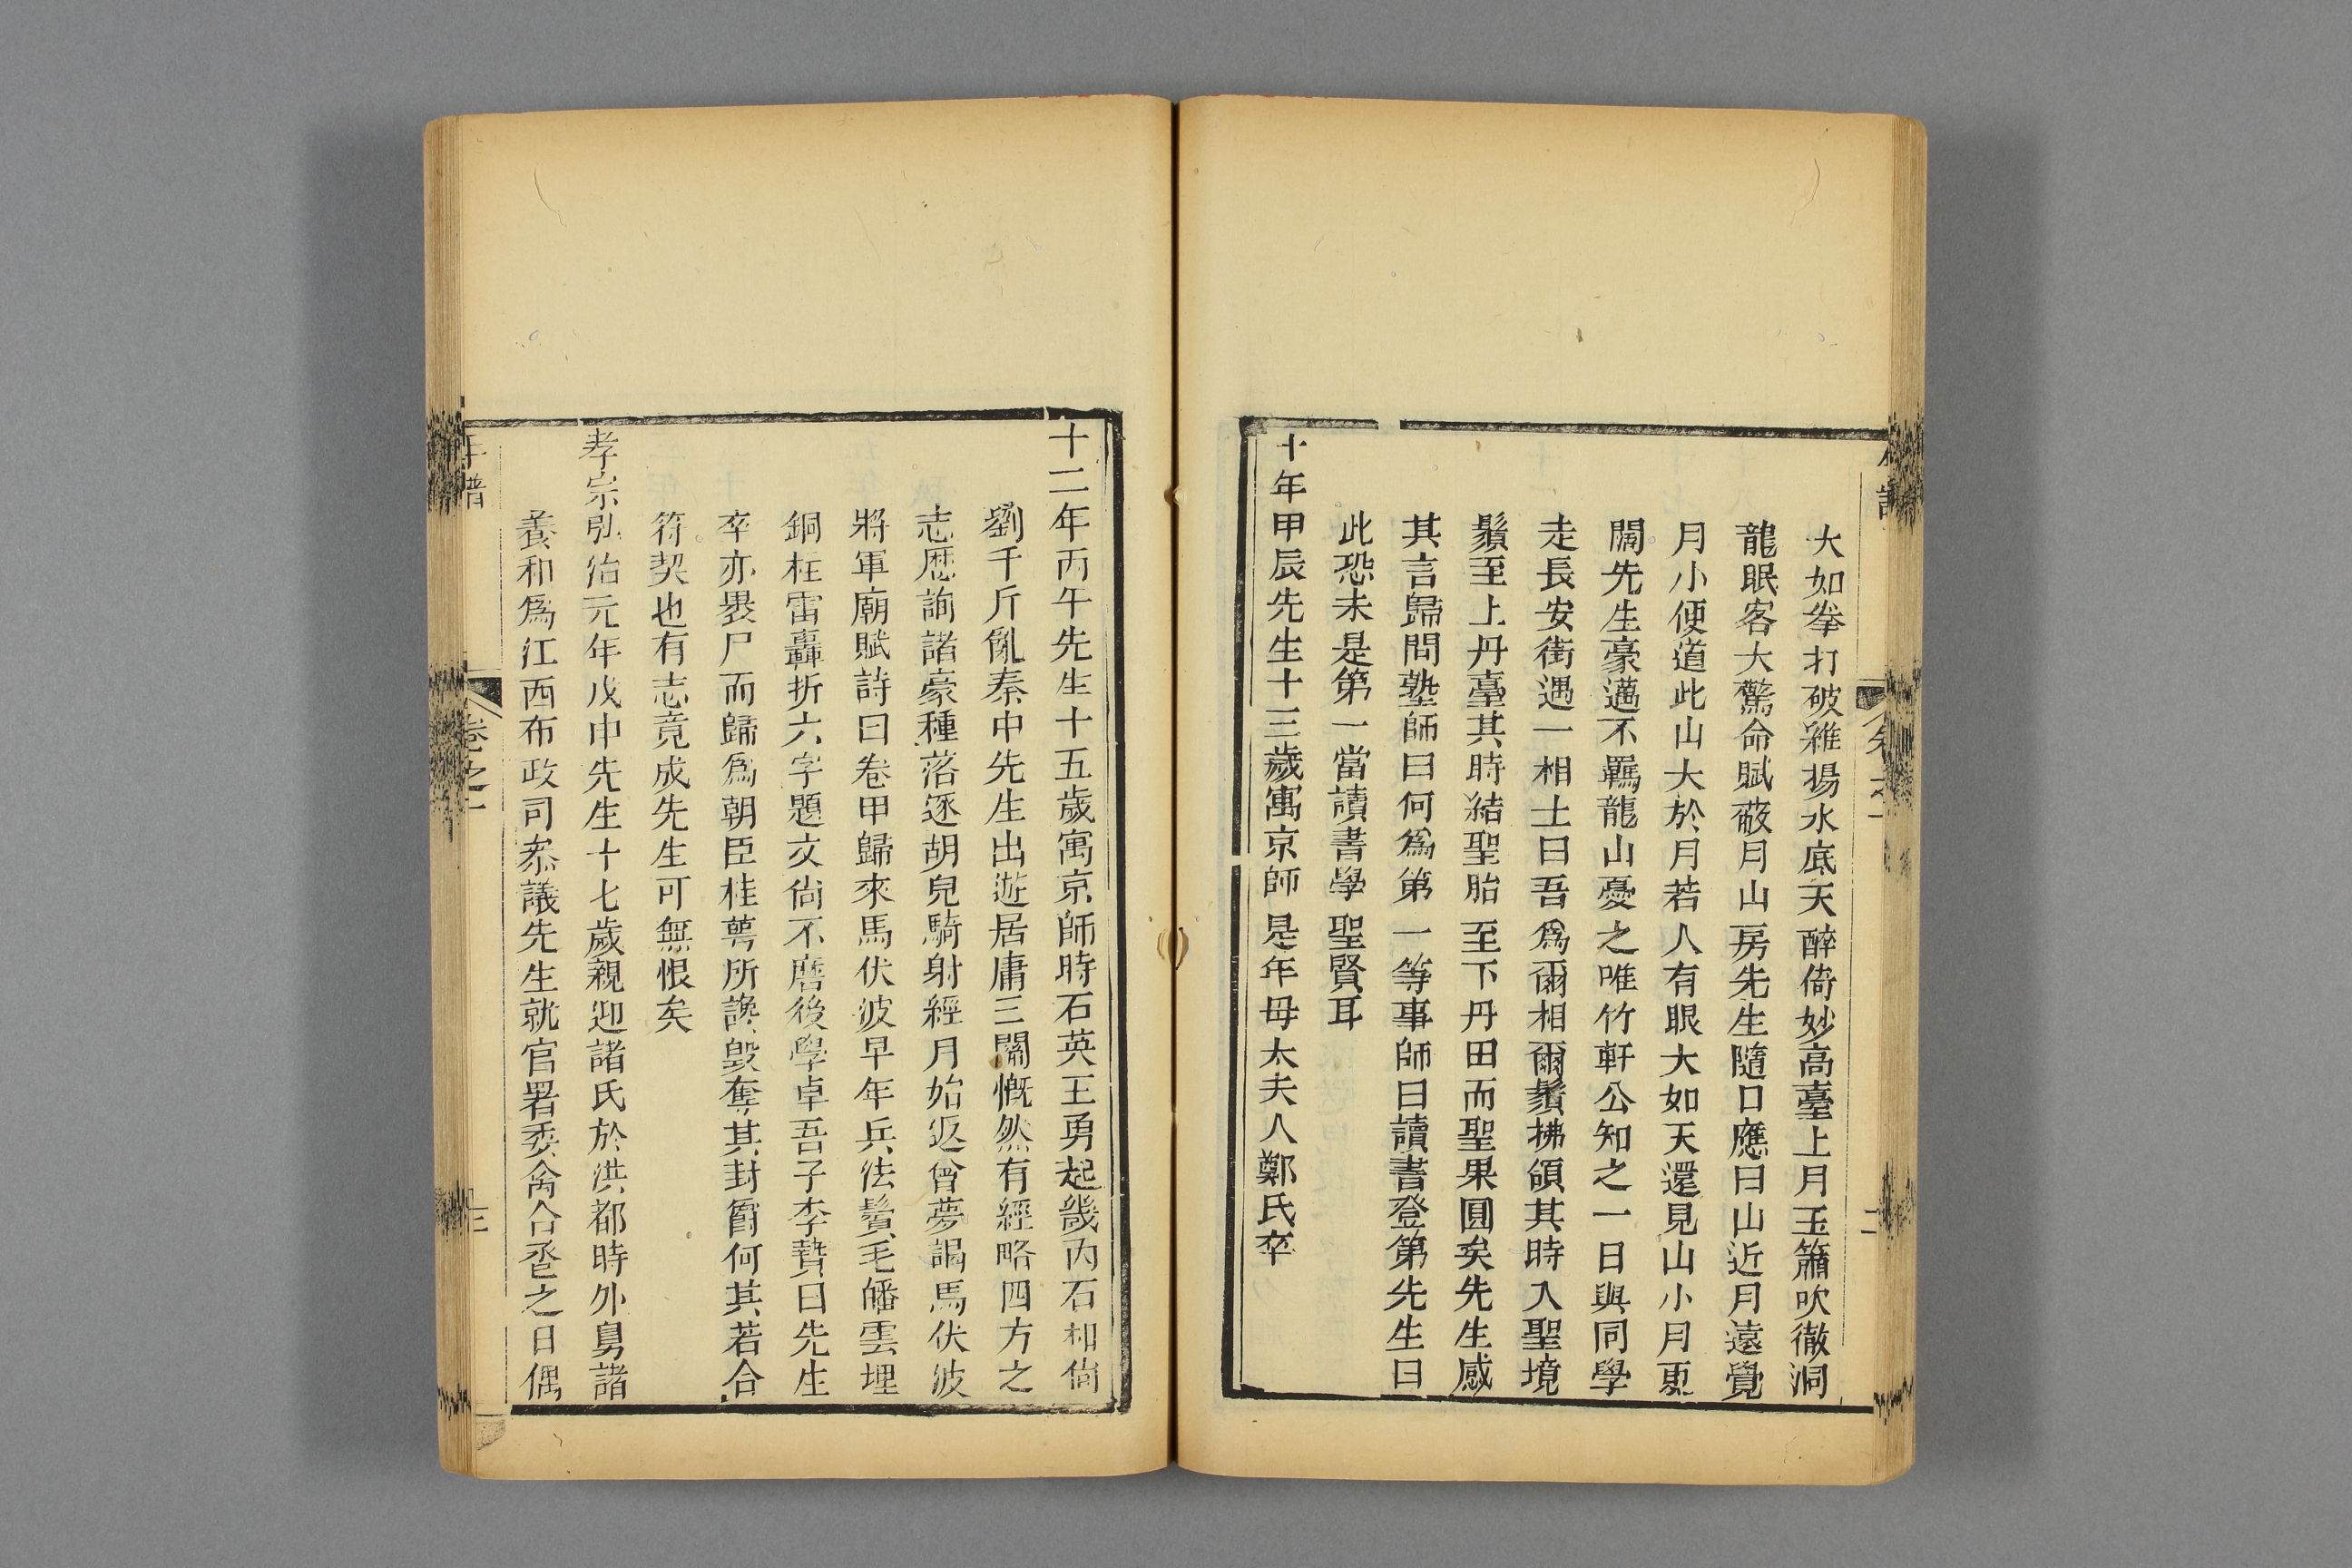 大如拳打破維揚水底天醉倚妙高臺上月玉簫吹徹洞
龍眠客大驚命賦蔽月山房先生隨口應曰山近月遠覺
月小便道此山大於月若人有眼大如天還見山小月更
闊先生豪邁不羈龍山憂之唯竹軒公知之一日與同學
走長安街遇一相士曰吾爲爾相爾鬚拂領其時入聖境
鬚至上丹臺其時結聖胎至下丹田而聖果圓矣先生感
其言歸問塾師曰何爲第一等事師曰讀書登第先生曰
此恐未是第一當讀書學聖賢耳
十年甲辰先生十三歲寓京師是年母太夫人鄭氏卒
十二年丙午先生十五歲寓京師時石英王勇起畿內石和尙
劉千斤亂秦中先生出遊居庸三關慨然有經略四方之
志歷詢諸豪種落逐胡兒騎射經月始返曾夢謁馬伏波
將軍廟賦詩曰卷甲歸來馬伏波早年兵法鬢毛皤雲埋
銅柱雷轟折六字題文尙不磨後學卓吾子李贄曰先生
卒亦裹尸而歸爲朝臣桂萼所讒毀奪其封爵何其若合
符契也有志竟成先生可無恨矣
孝宗弘治元年戊申先生十七歲親迎諸氏於洪都時外舅諸
養和爲江西布政司叅議先生就官署委禽合卺之日偶
年譜 卷之一 三